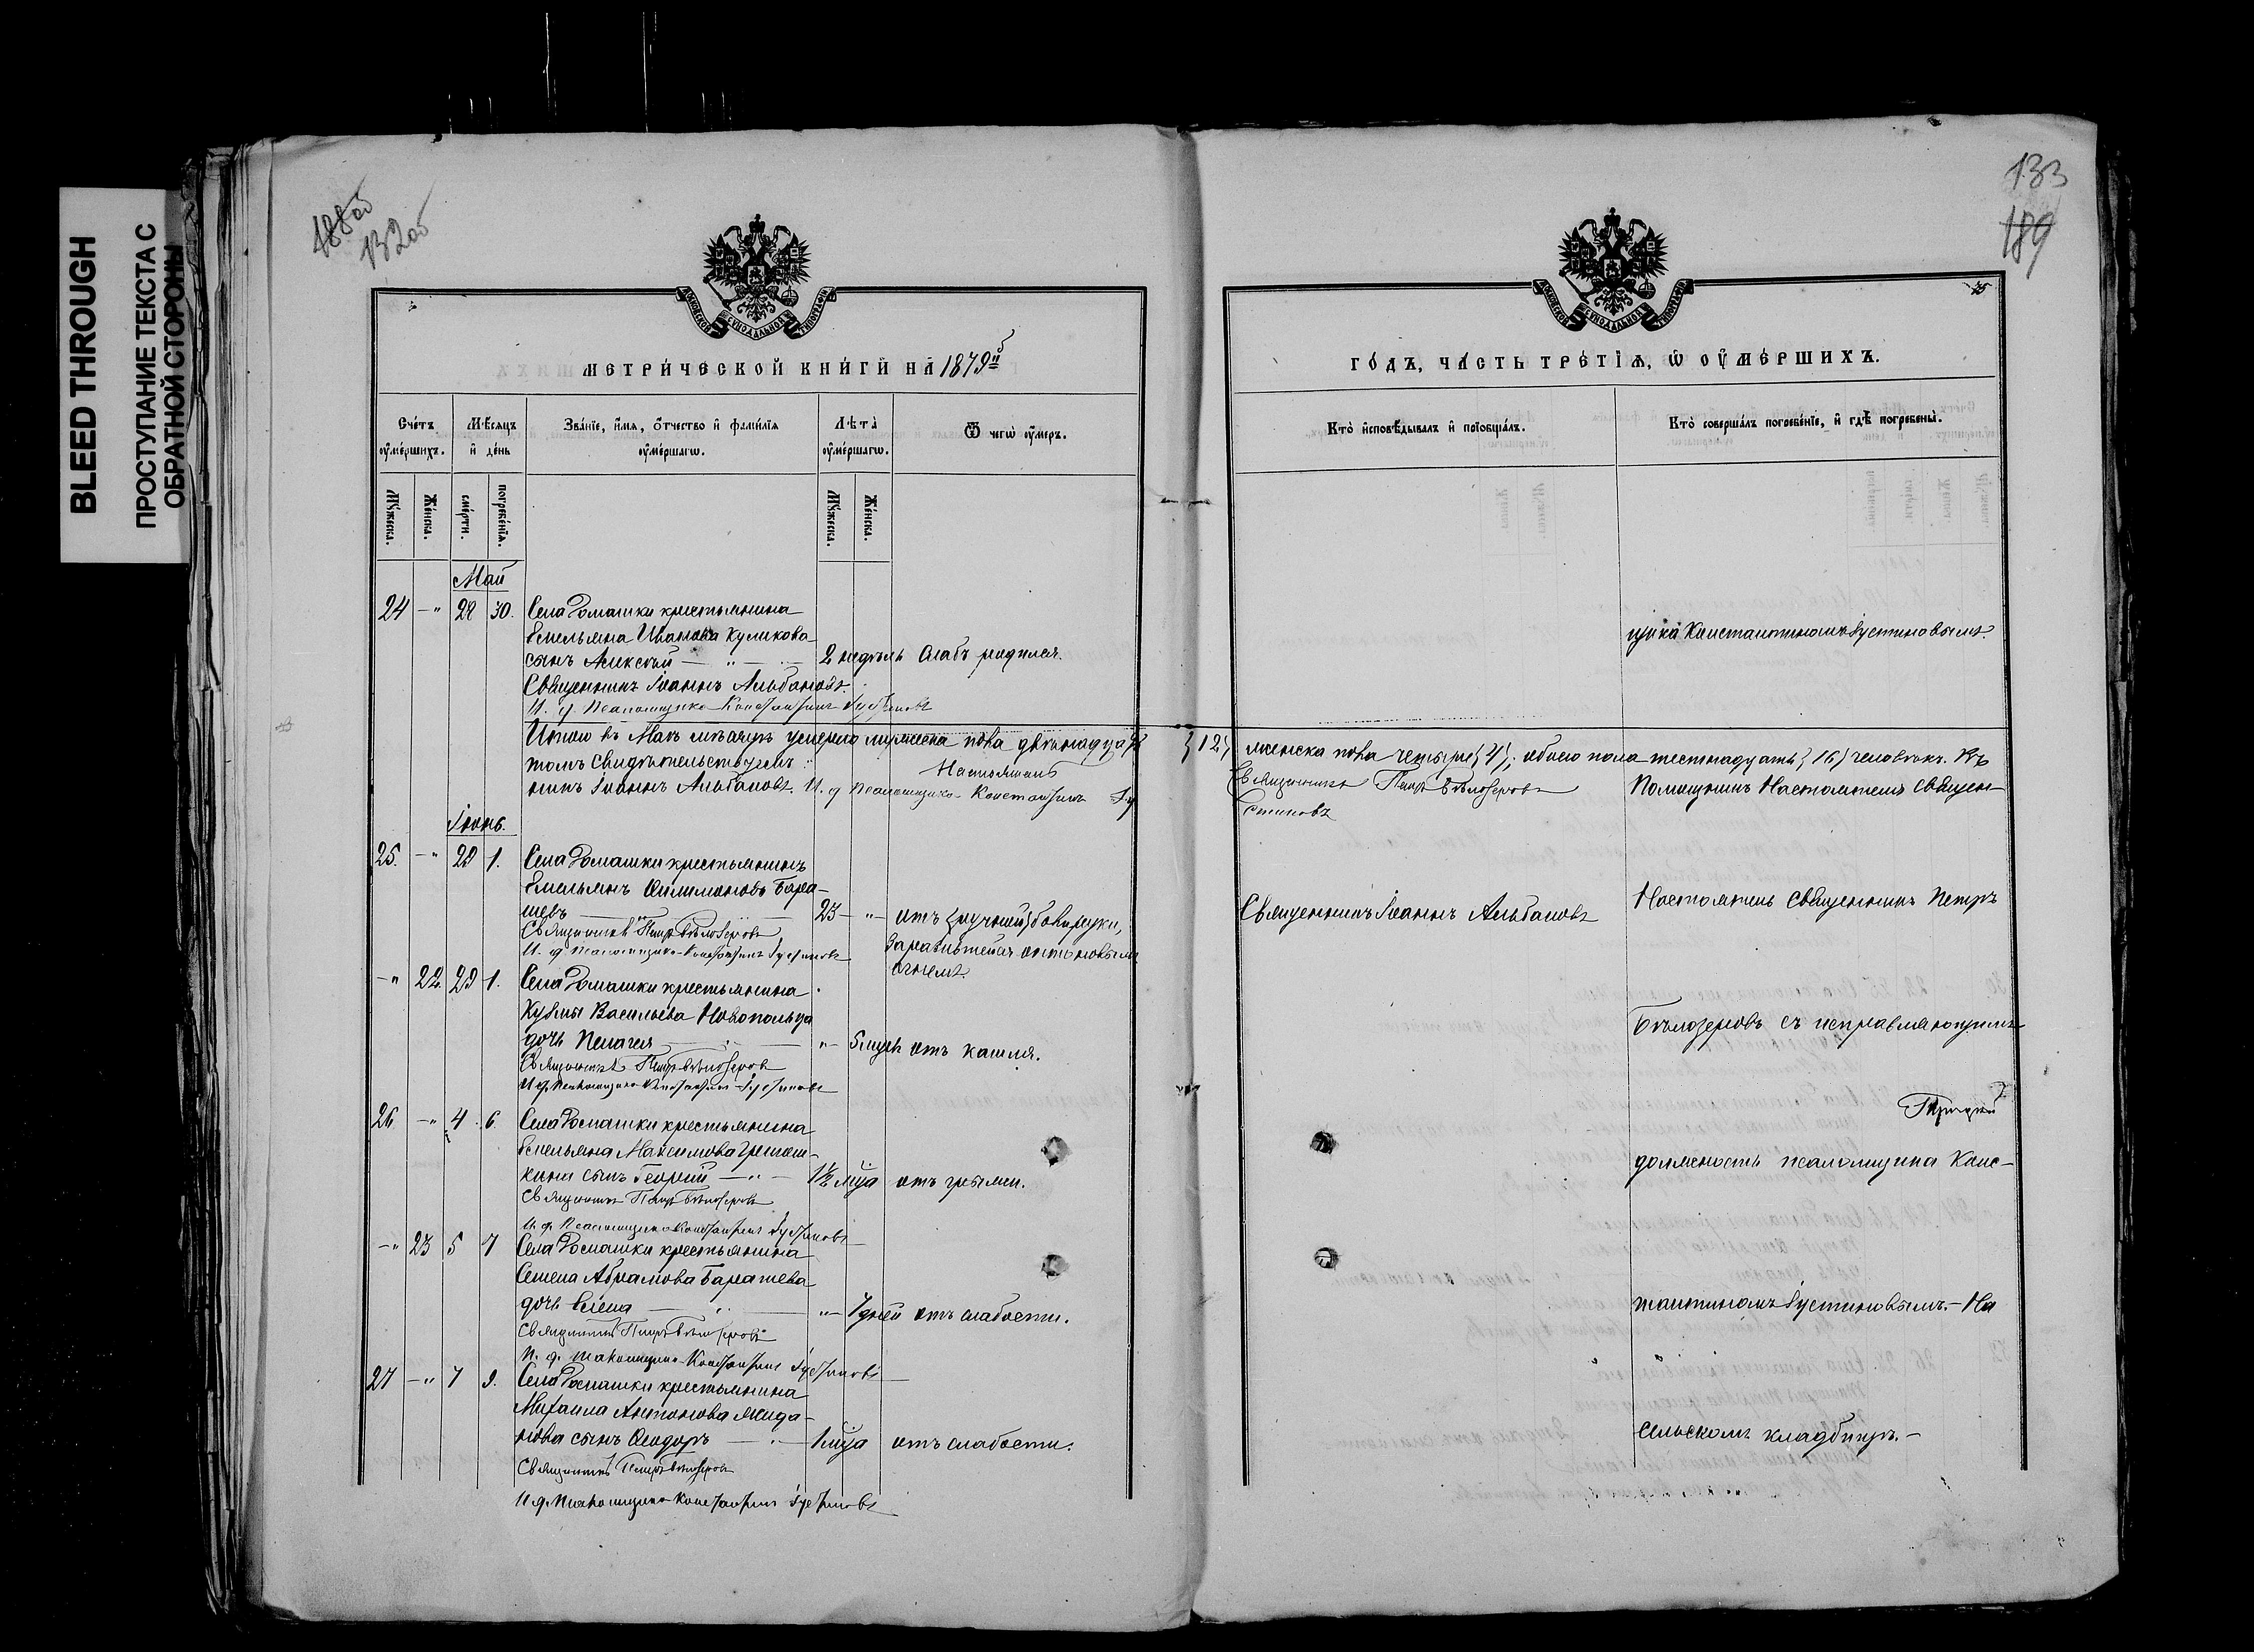 BLEED THROUGH
ПРОСТУПАНИЕ ТЕКСТА С
ОБРАТНОЙ СТОРОНЫ
188об
132об
МЕТРИЧЕСКОЙ КНИГИ НА 1879й
Счетъ умершихъ.
Мѣсяцъ и день
Званіе, имя, отчество и фамилія умершаго.
Лѣта умершаго.
Ѿ чего умеръ.
Мужеска.
Женска.
смерти.
погребенія.
Мужеска.
Женска.
Май
24 — " 28 30. Села Ромашки крестьянина
Емельяна Иванова Куликова
сынъ Алексѣй — " — 2 недѣль Слабъ родился.
Священникъ Іоаннъ Альбановъ.
И. д. Псаломщика Константинъ Іустиновъ
Итого въ Маѣ мѣсяцѣ умерло мужеска пола двѣнадцать
томъ свидѣтельствуемъ:
Настоятель
никъ Іоаннъ Альбановъ. И. д. Псаломщика Константинъ Іу
Іюнь.
25. — " 29 1. Села Ромашки крестьянинъ
Емельянъ Филимоновъ Бара-
шевъ — " — 23 — " — отъ боли руки,
заразившейся антоновымъ
огнемъ.
Священникъ Петръ Бѣлозеровъ
И. д. псаломщика Константинъ Іустиновъ
— " 22. 29 1. Села Ромашки крестьянина
Кузьмы Васильева Новопольца
дочь Пелагея — " — " — 5 мцѣ отъ кашля.
Священникъ Петръ Бѣлозеровъ
И. д. Псаломщика Константинъ Іустиновъ
26 — " 4 6 Села Ромашки крестьянина
Емельяна Максимова Гречиш-
кина сынъ Георгій — " — 1½ мца отъ грыжи.
Священникъ Петръ Бѣлозеровъ
И. д. Псаломщика Константинъ Іустиновъ
— " 23 5 7 Села Ромашки крестьянина
Семена Абрамова Барашева
дочь Елена — " — " — 7 дней отъ слабости.
Священникъ Петръ Бѣлозеровъ
И. д. Псаломщика Константинъ Іустиновъ
27 — " 7 9. Села Ромашки крестьянина
Михаила Антонова Жида-
нова сынъ Ѳеодоръ — " — 1 мца отъ слабости.
Священникъ Петръ Бѣлозеровъ
И. д. Псаломщика Константинъ Іустиновъ
133
189
ГОДЪ, ЧАСТЬ ТРЕТІЯ, Ѡ УМЕРШИХЪ.
Кто исповѣдывалъ и пріобщалъ.
Кто совершалъ погребеніе, и гдѣ погребены.
щика Константиномъ Іустиновымъ.
{12} женска пола четыре {4}, обоего пола шестнадцать {16} человѣкъ. Въ
Священникъ Петръ Бѣлозеровъ
Помощникъ Настоятеля Священ-
стиновъ
Священникъ Іоаннъ Альбановъ
Настоятель Священникъ Петръ
Бѣлозеровъ съ исправляющимъ
должность псаломщика Конс-
тантиномъ Іустиновымъ. — На
сельскомъ кладбищѣ. —